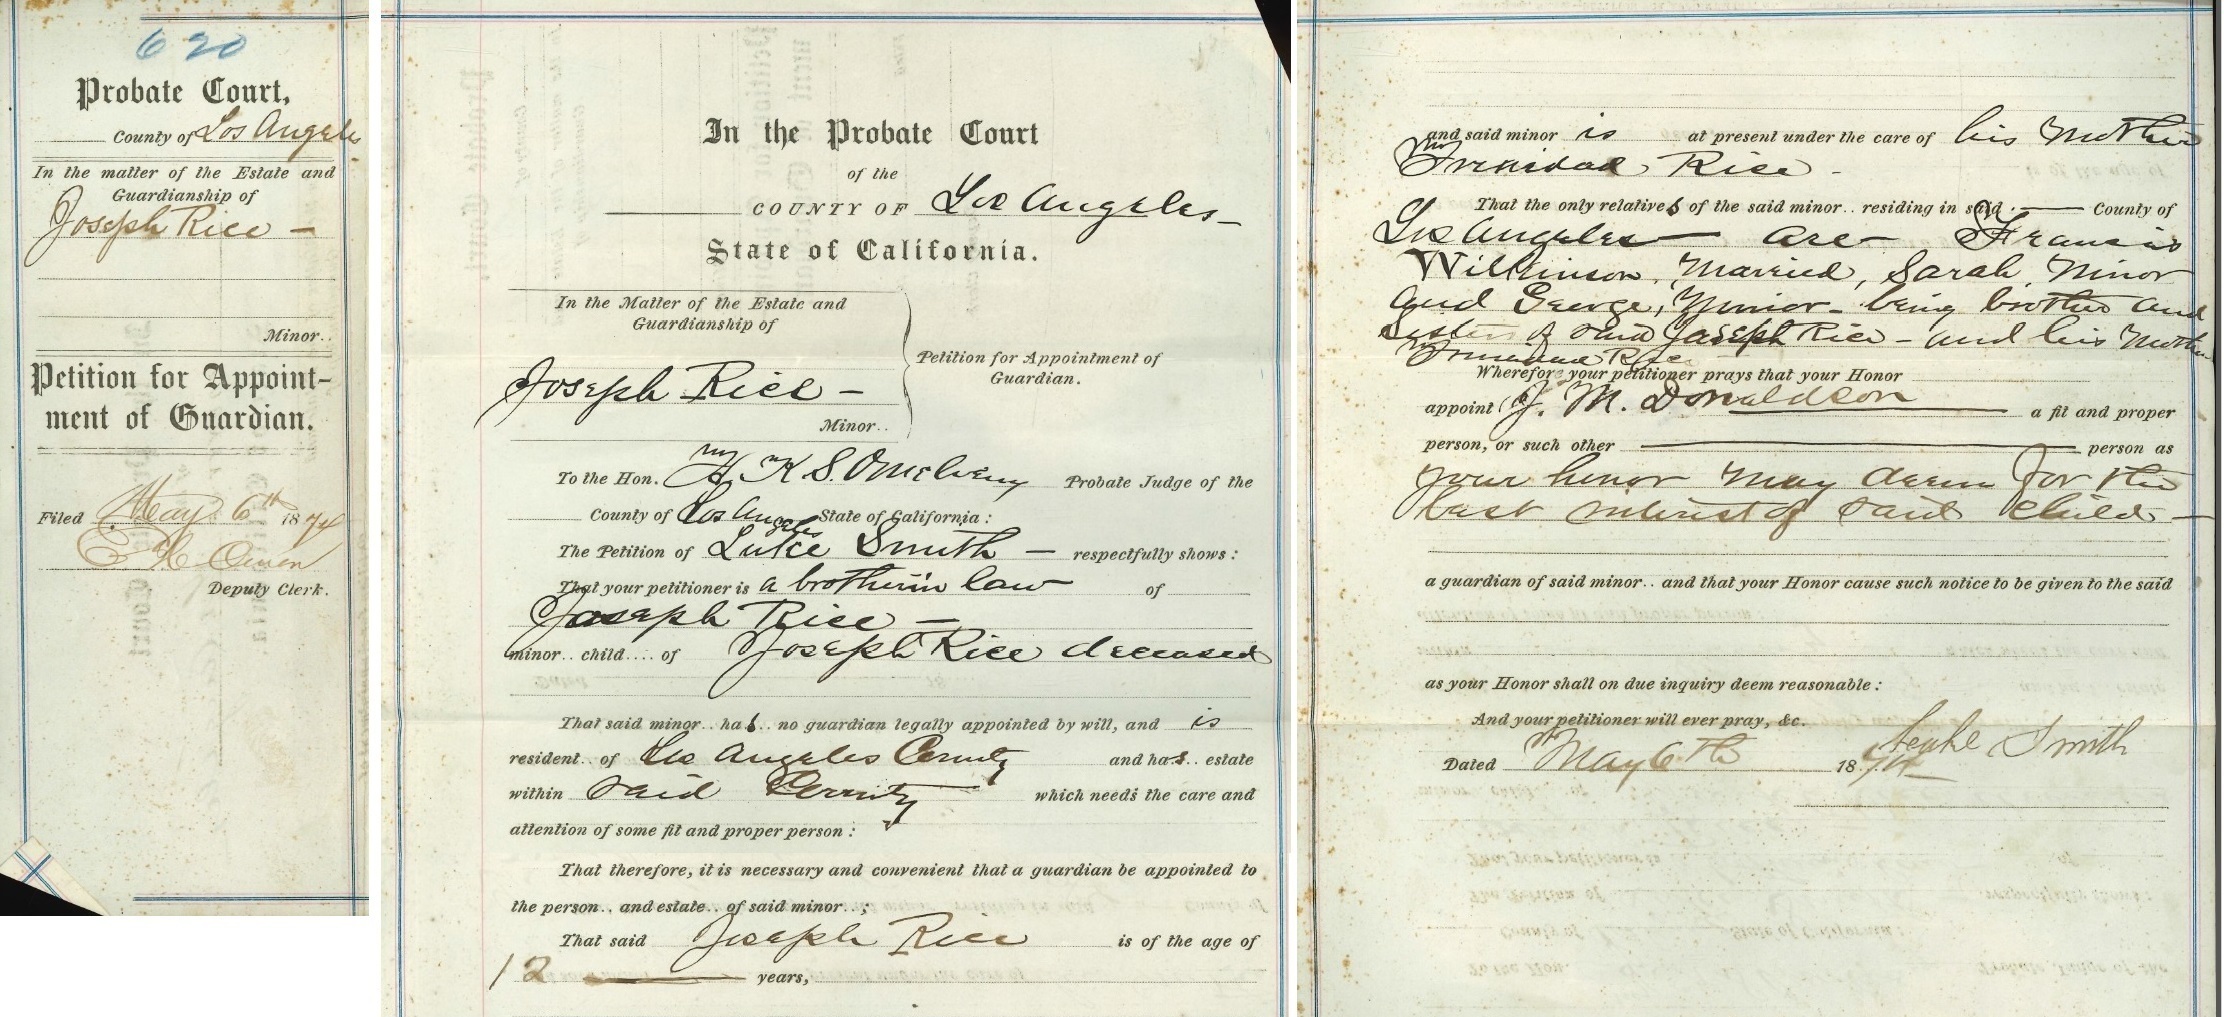 620
Probate Court,
County of Los Angeles
In the matter of the Estate and
Guardianship of
Joseph Rice -
Minor..
Petition for Appoint-
ment of Guardian.
Filed May 6th 1874
Deputy Clerk.
In the Probate Court
of the
COUNTY OF Los Angeles -
State of California.
In the Matter of the Estate and
Guardianship of
Joseph Rice -
Minor..
Petition for Appointment of
Guardian.
To the Hon. H. K. S. OMelveny Probate Judge of the
County of Los Angeles State of California:
The Petition of Luke Smith - respectfully shows:
That your petitioner is a brother in law of
Joseph Rice -
minor.. child.... of Joseph Rice deceased
That said minor.. has.. no guardian legally appointed by will, and is
resident.. of Los Angeles County and has.. estate
within said County which needs the care and
attention of some fit and proper person:
That therefore, it is necessary and convenient that a guardian be appointed to
the person.. and estate.. of said minor..;
That said Joseph Rice is of the age of
12 years,
and said minor is at present under the care of his Mother
Trinidad Rice -
That the only relatives of the said minor.. residing in said County of
Los Angeles are Francis
Wilkinson, Married, Sarah, Minor
and George, Minor - being brother and
sisters of said Joseph Rice - and his Mother
Trinidad Rice
Wherefore your petitioner prays that your Honor
appoint J. M. Donaldson a fit and proper
person, or such other person as
your honor may deem for the
best interest of said Child -
a guardian of said minor.. and that your Honor cause such notice to be given to the said
as your Honor shall on due inquiry deem reasonable:
And your petitioner will ever pray, &c.
Luke Smith
Dated May 6th 1874